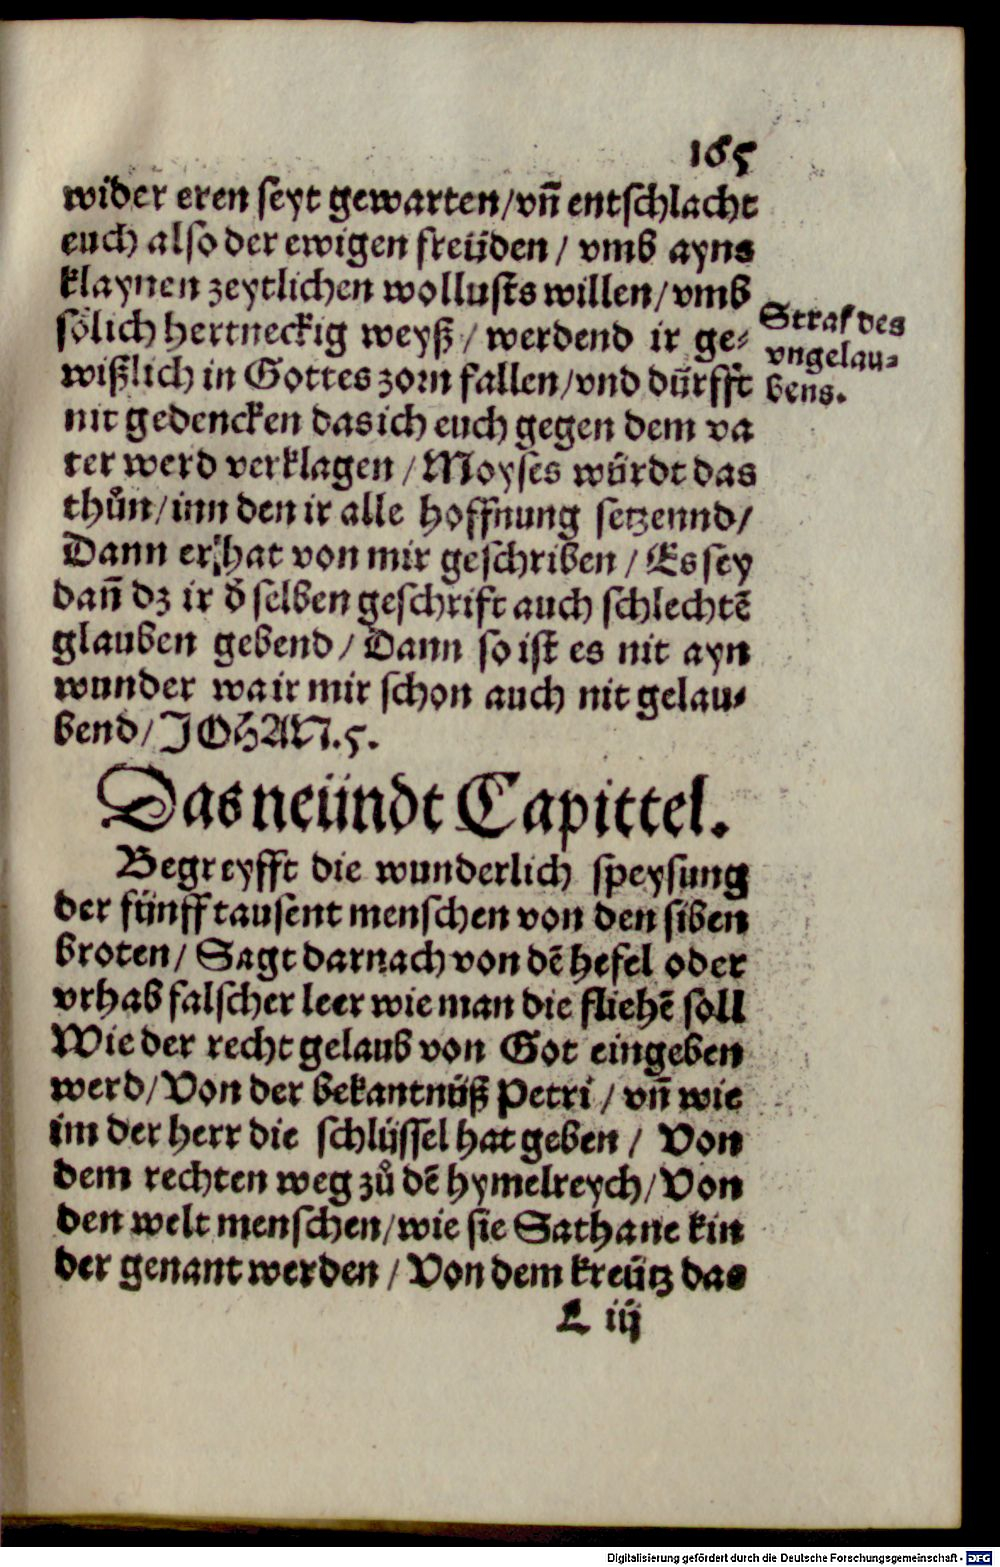 165
wider eren seyt gewarten/vn̄ entschlacht
euch also der ewigen freüden / vmb ayns
klaynen zeytlichen wollusts willen/vmb
sölich hertneckig weyß / werdend ir ge-
wißlich in Gottes zorn fallen/vnd dürfft
nit gedencken das ich euch gegen dem va
ter werd verklagen / Moyses würdt das
thůn/inn den ir alle hoffnung setzennd/
Dann er hat von mir geschriben / Es sey
dan̄ dz ir d̄ selben geschrift auch schlechtē
glauben gebend / Dann so ist es nit ayn
wunder wa ir mir schon auch nit gelau-
bend/ JOHAN. 5.
Straf des
vngelau-
bens.
Das neündt Capittel.
Begreyfft die wunderlich speysung
der fünff tausent menschen von den siben
broten/ Sagt darnach von dē hefel oder
vrhab falscher leer wie man die fliehē soll
Wie der recht gelaub von Got eingeben
werd/Von der bekantnüß Petri / vn̄ wie
im der herr die schlüssel hat geben / Von
dem rechten weg zů dē hymelreych/Von
den welt menschen/wie sie Sathane kin
der genant werden / Von dem kreütz das
L iij
Digitalisierung gefördert durch die Deutsche Forschungsgemeinschaft - DFG